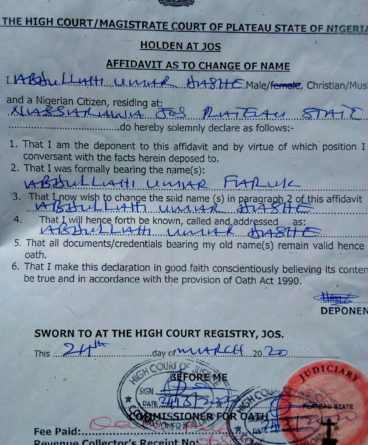 THE HIGH COURT/MAGISTRATE COURT OF PLATEAU STATE OF NIGERIA
HOLDEN AT JOS
AFFIDAVIT AS TO CHANGE OF NAME
I. ABDULLAHI UMAR DASHE Male/female, Christian/Mus
and a Nigerian Citizen, residing at:
NASSARAWA JOS PLATEAU STATE
do hereby solemnly declare as follows:-
1. That I am the deponent to this affidavit and by virtue of which position I
conversant with the facts herein deposed to.
2. That I was formally bearing the name(s):
ABDULLAHI UMAR FARUK
3. That I now wish to change the said name (s) in paragraph 2 of this affidavit
ABDULLAHI UMAR DASHE
4. That I will hence forth be known, called and addressed as:
ABDULLAHI UMAR DASHE
5. That all documents/credentials bearing my old name(s) remain valid hence
oath.
6. That I make this declaration in good faith conscientiously believing its conten
be true and in accordance with the provision of Oath Act 1990.
DEPONEN
SWORN TO AT THE HIGH COURT REGISTRY, JOS.
This 24th day of MARCH 2020
BEFORE ME
HIGH COURT OF JUSTICE
SIGN
DATE
COMMISSIONER FOR OATH
JUDICIARY
PLATEAU STATE
Fee Paid:
Revenue Collector's Receipt No